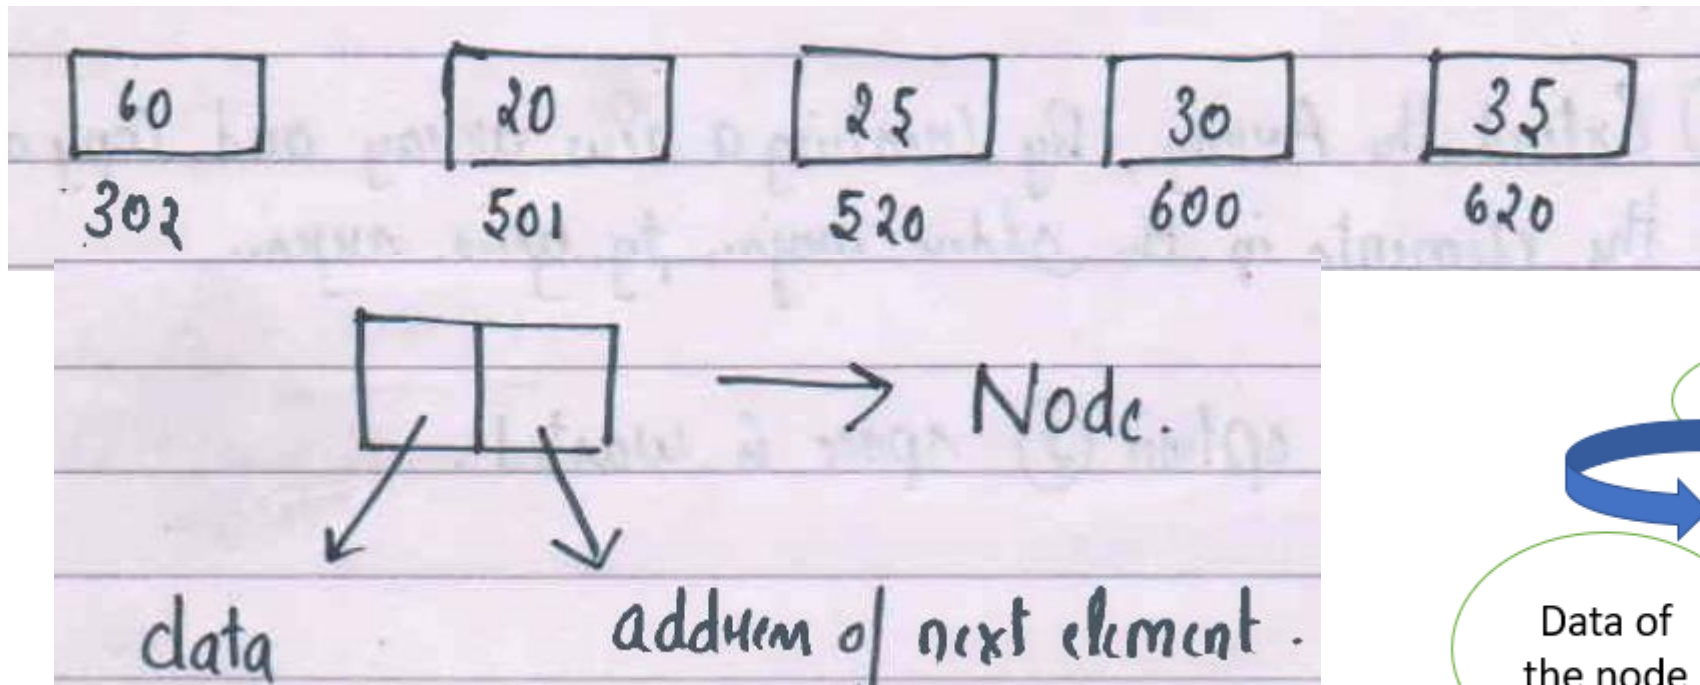 60 20 25 30 35
302 501 520 600 620
Node.
data address of next element.
Data of
the node